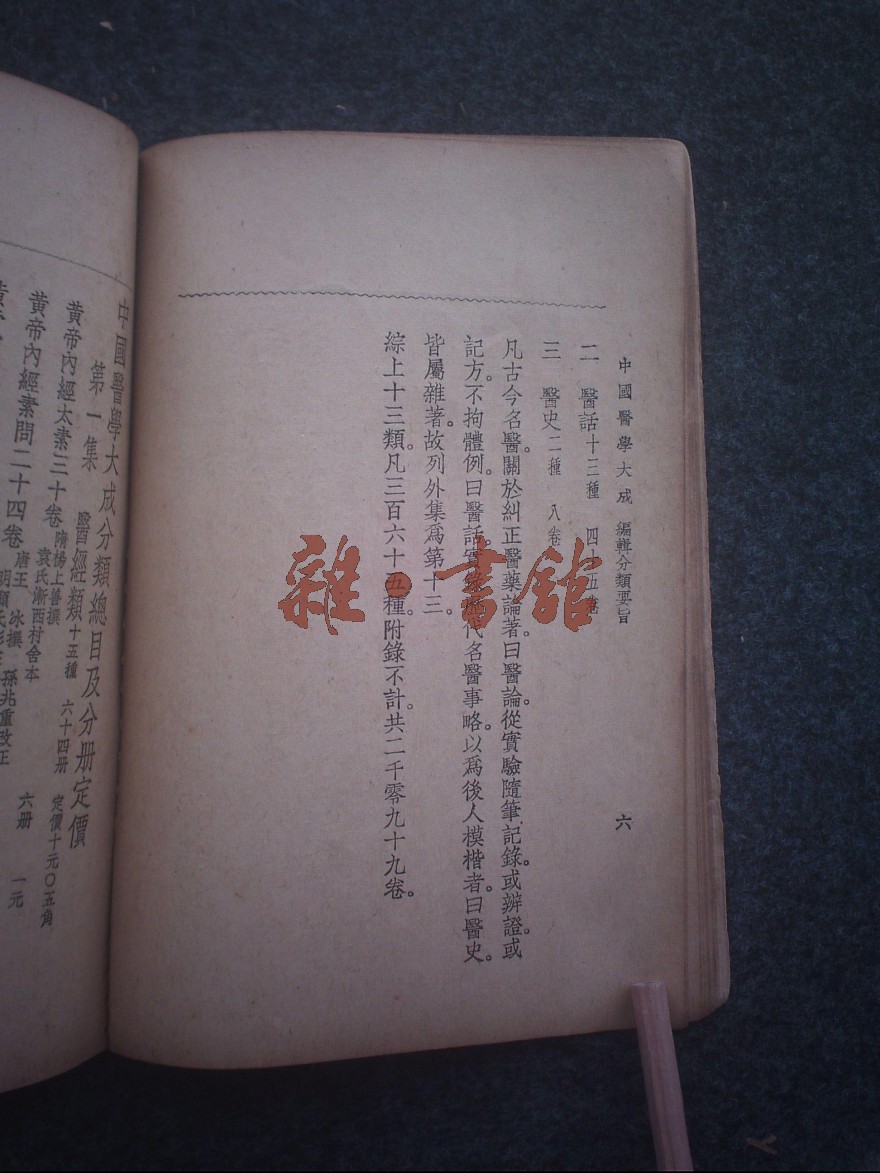 中國醫學大成 編輯分類要旨 六
二 醫話十三種 四十五卷
三 醫史二種 八卷
凡古今名醫。關於糾正醫藥論著。曰醫論。從實驗隨筆記錄。或辨證。或
記方。不拘體例。曰醫話。實錄歷代名醫事略。以爲後人模楷者。曰醫史。
皆屬雜著。故列外集爲第十三。
綜上十三類。凡三百六十五種。附錄不計。共二千零九十九卷。
雜·書館
中國醫學大成分類總目及分册定價
第一集 醫經類十五種 六十四册 定價十元〇五角
黃帝內經太素三十卷 隋楊上善撰 袁氏漸西村舍本
黃帝內經素問二十四卷 唐王冰撰 孫兆重改正 六册 一元